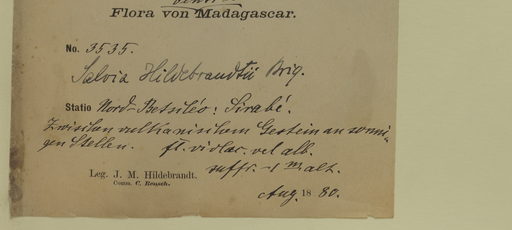 Flora von Madagascar.
No. 3535.
Salvia Hildebrandtii Briq.
Statio Nord-Betsiléo: Sirabé.
Zwischen vulkanischem Gestein an sonni-
gen Stellen. fl. violac. vel alb.
suffr. -1 m. alt.
Leg. J. M. Hildebrandt.
Comm. C. Rensch.
Aug. 18 80.